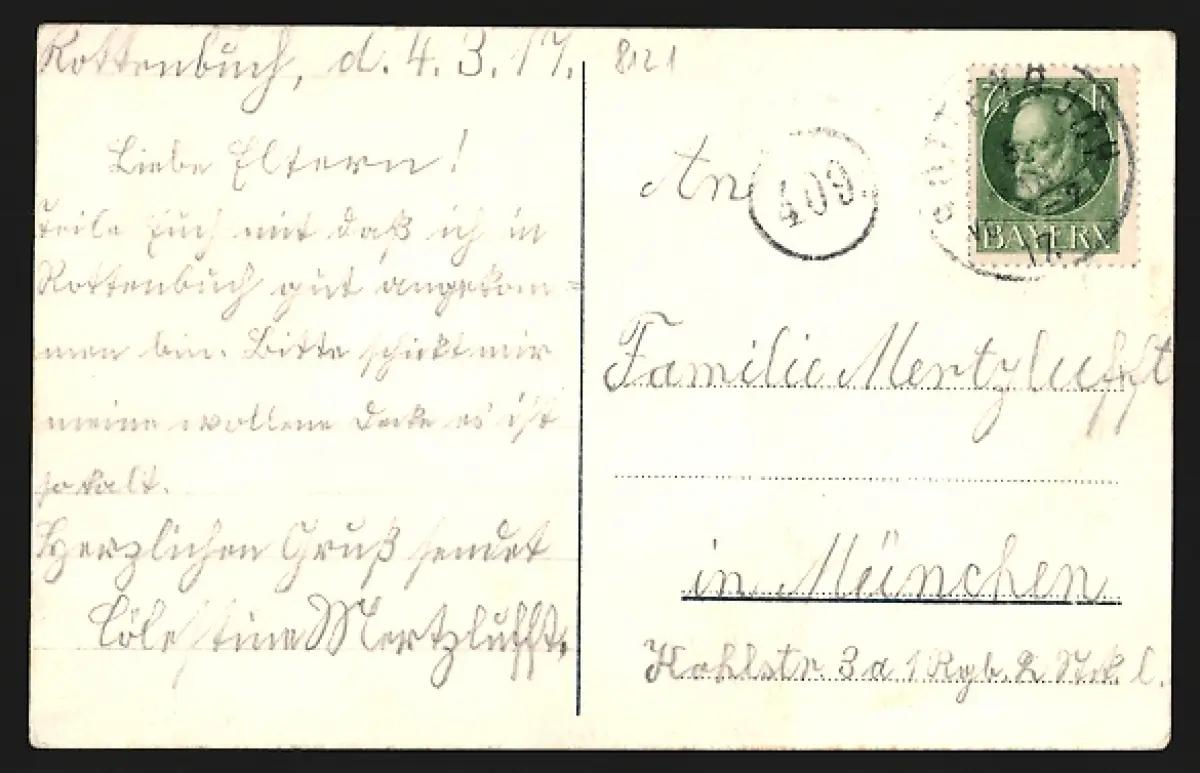 Rottenbuch, d. 4. 3. 17.
Liebe Eltern!
teile Euch mit daß ich in
Rottenbuch gut angekom=
men bin. Bitte schickt mir
meine wollene Decke es ist
so kalt.
Herzlichen Gruß sendet
Cölestine Mertzlufft.
8121
An
409
BAYERN
17
Familie Mertzlufft
in München
Kohlstr. 3a 1 Rgb. 2 Stck. l.